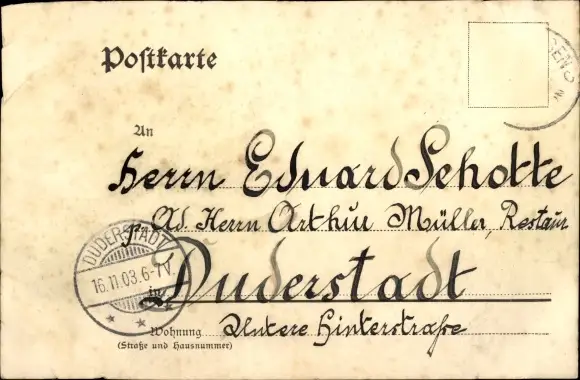 Postkarte
SEN
An
Herrn Eduard Schotte
p. Ad. Herrn Arthur Müller, Restaur
DUDERSTADT
16.11.03.6-7V.
in Duderstadt
Wohnung Untere Hinterstraße
(Straße und Hausnummer)